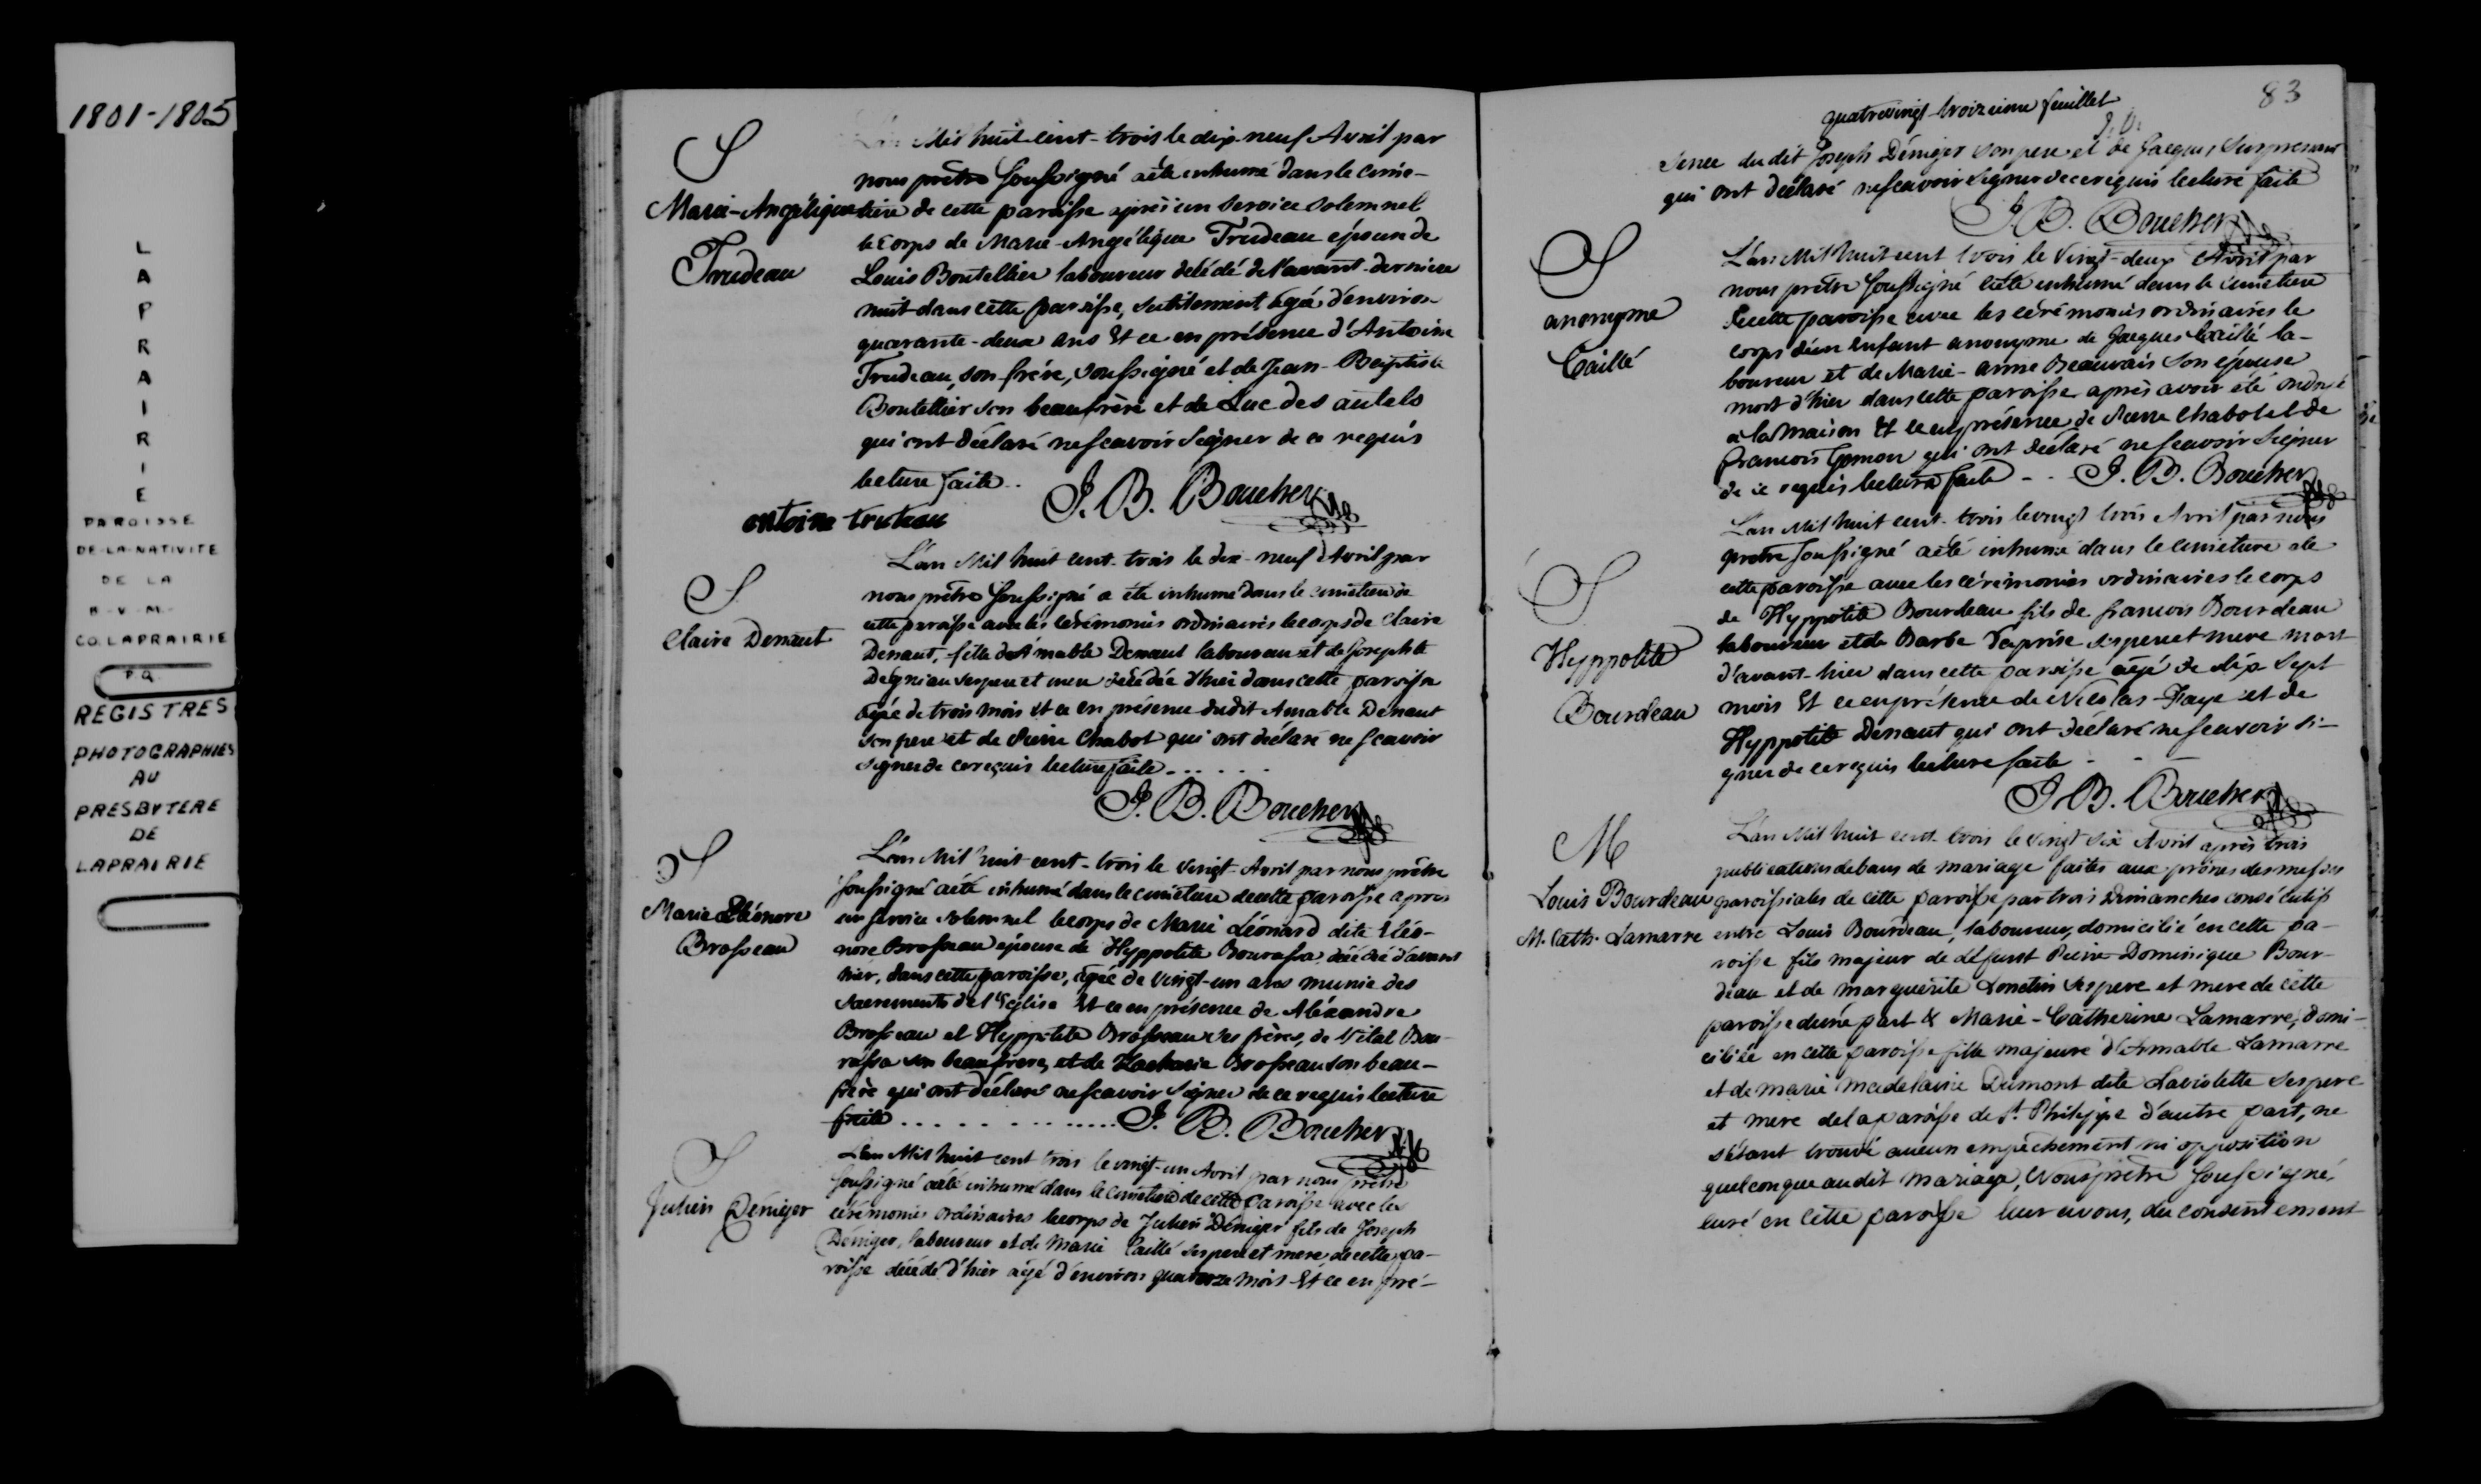 1801-1805
L
A
P
R
A
I
R
I
E
PAROISSE
DE-LA-NATIVITE
DE LA
B-V-M-
CO. LAPRAIRIE
P.Q.
REGISTRES
PHOTOGRAPHIES
AU
PRESBYTERE
DE
LAPRAIRIE
S
Marie-Angélique
Trudeau
L'an Mil huit cent-trois le dix-neuf Avril par
nous prêtre soussigné a été inhumé dans le cime-
tière de cette paroisse après un service solemnel
le corps de Marie-Angélique Trudeau épouse de
Louis Boutellier laboureur décédé de l'avant-dernière
nuit dans cette paroisse, subitement âgé d'environ
quarante-deux ans Et ce en présence d'Antoine
Trudeau, son frère, soussigné et de Jean-Baptiste
Boutellier son beaufrère et de Luc des autels
qui ont déclaré ne scavoir signer de ce requis
lecture faite..
J. B. Boucher
antoine truteau
S
Claire Denaut
L'an Mil huit cent-trois le dix-neuf Avril par
nous prêtre soussigné a été inhumé dans le cimetiere de
cette paroisse avec les cérémonies ordinaires le corps de Claire
Denaut, fille d'Amable Denaut laboureur et de Josephte
Deigniau ses pere et mere décédée d'hier dans cette paroisse
âgée de trois mois et ce en présence dudit Amable Denaut
son pere et de Pierre Chabot qui ont déclaré ne scavoir
signer de ce requis lecture faite.....
J. B. Boucher
S
Marie Eléonore
Brosseau
L'an Mil huit cent-trois le vingt-Avril par nous prêtre
soussigné a été inhumé dans le cimetiere de cette paroisse apres
un service solemnel le corps de Marie Léonard dite Eléo-
nore Brosseau épouse de Hyppolite Bourassa décédé d'avant
hier, dans cette paroisse, âgée de vingt-un ans munie des
sacrements de l'Eglise Et ce en présence de Aléxandre
Brosseau et Hyppolite Brosseau ses frères, de Vital Bou-
rassa son beaufrere, et de Zacharie Brosseau son beau-
frère qui ont déclaré ne scavoir signer de ce requis lecture
faite............. J. B. Boucher
S
Julien Déniger
L'an Mil huit cent trois le vingt-un Avril par nous prêtre
soussigné a été inhumé dans le cimetiere de cette Paroisse avec les
cérémonies ordinaires le corps de Julien Déniger fils de Joseph
Déniger, laboureur et de Marie Caillé ses pere et mere, de cette pa-
roisse décédé d'hier âgé d'environ quatorze mois Et ce en pré-
83
quatrevingt-troizieme feuillet
sence du dit Joseph Déniger son pere et de Jacques Surprenant
qui ont déclaré ne scavoir signer de ce requis lecture faite
J. B. Boucher
S
anonyme
Caillé
L'an Mil huit cent trois le Vingt-deux Avril par
nous prêtre soussigné a été inhumé dans le cimetiere
de cette paroisse avec les cérémonies ordinaires le
corps d'un enfant anonyme de Jacques Caillé la-
boureur et de Marie-anne Beauvais son épouse
mort d'hier dans cette paroisse après avoir été ondoié
à la maison Et ce en présence de Pierre Chabot et de
francois Gemon qui ont déclaré ne scavoir signer
de ce requis lecture faite -- J. B. Boucher
S
Hyppolite
Bourdeau
L'an Mil huit cent-trois le vingt trois Avril par nous
prêtre soussigné a été inhumé dans le cimetiere de
cette paroisse avec les cérémonies ordinaires le corps
de Hyppolite Bourdeau fils de francois Bourdeau
laboureur et de Barbe Daprise ses pere et mere mort
d'avant-hier dans cette paroisse âgé de dix sept
mois Et ce en présence de Nicolas Faye et de
Hyppolite Denaut qui ont déclaré ne scavoir si-
gner de ce requis lecture faite - - -
J. B. Boucher
M
Louis Bourdeau
M. Cath. Lamarre
L'an Mil huit cent-trois le vingt six Avril après trois
publications de bans de mariage faites aux prônes des messes
paroissiales de cette paroisse par trois Dimanches consécutifs
entre Louis Bourdeau, laboureur, domicilié en cette pa-
roisse fils majeur de défunt Pierre-Dominique Bour-
deau et de marguerite Lonctin ses pere et mere de cette
paroisse d'une part & Marie-Catherine Lamarre, domi-
ciliée en cette paroisse fille majeure d'Amable Lamarre
et de marie madelaine Dumont dite Laviolette ses pere
et mere de la paroisse de St. Philippe d'autre part, ne
s'étant trouvé aucun empêchement ni opposition
quelconque audit mariage, Nous prêtre soussigné,
curé en cette paroisse leur avons, du consentement